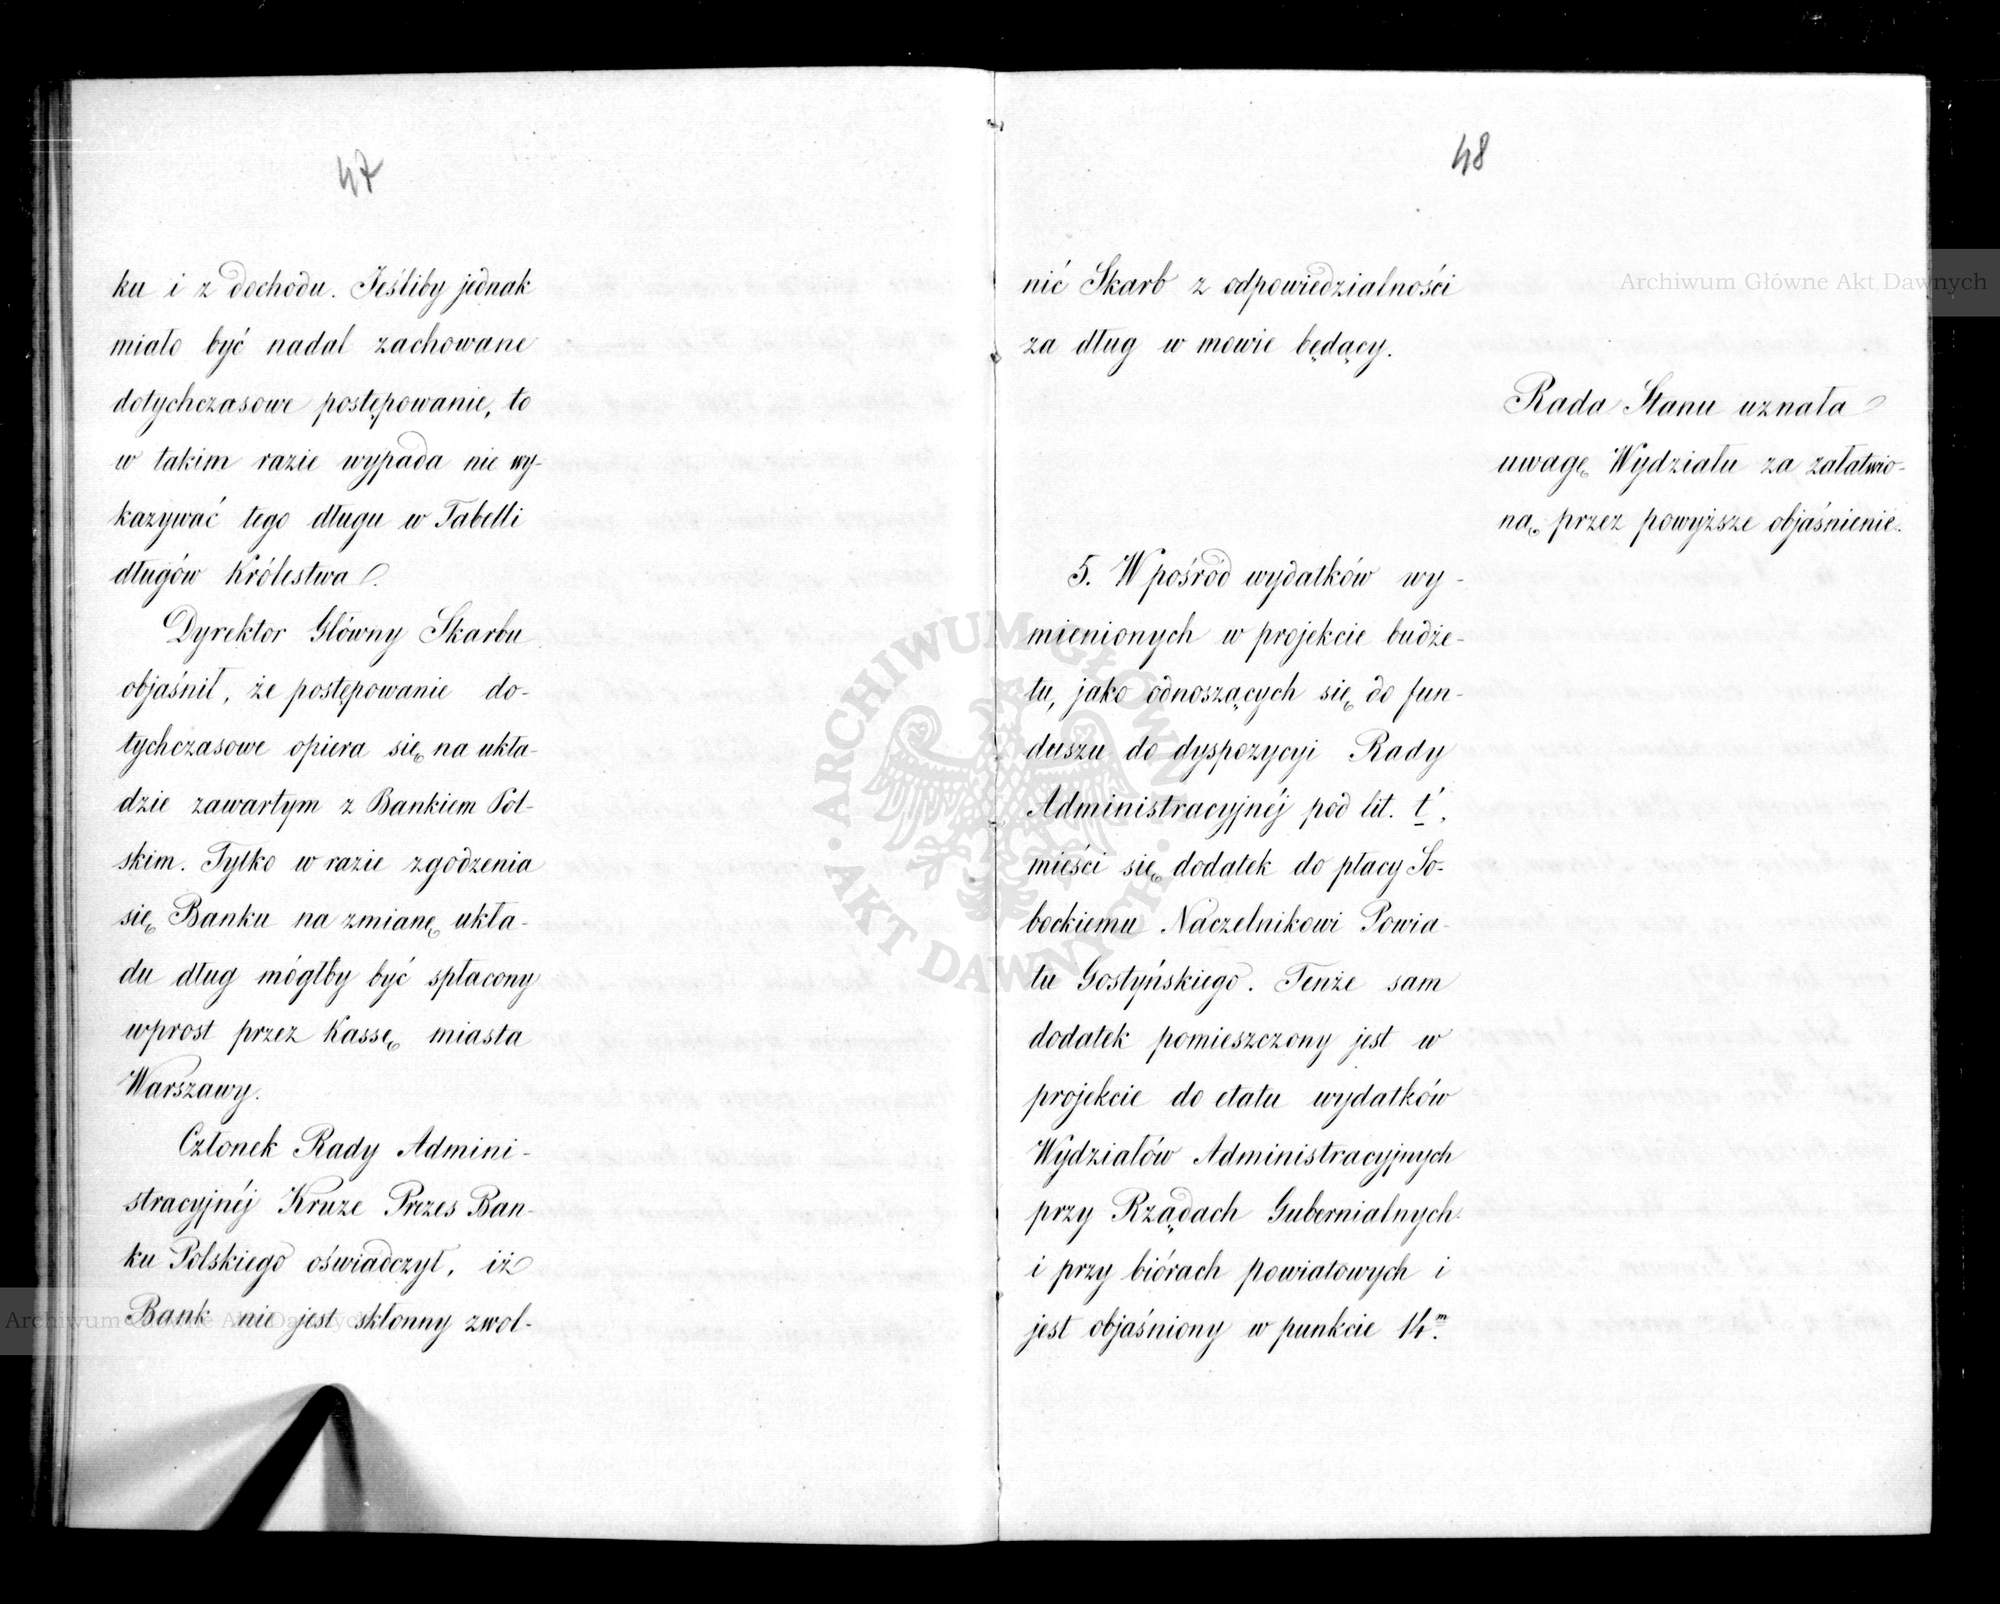 47
ku i z dochodu. Jeśliby jednak
miało być nadal zachowane
dotychczasowe postępowanie, to
w takim razie wypada nie wy-
kazywać tego długu w Tabelli
długów Królestwa.
Dyrektor Główny Skarbu
objaśnił, że postępowanie do-
tychczasowe opiera się na ukła-
dzie zawartym z Bankiem Pol-
skim. Tylko w razie zgodzenia
się Banku na zmianę ukła-
du dług mógłby być spłacony
wprost przez Kassę miasta
Warszawy.
Członek Rady Admini-
stracyjnéj Kruze Prezes Ban-
ku Polskiego oświadczył, iż
Bank nie jest skłonny zwol-
48
nić Skarb z odpowiedzialności
za dług w mowie będący.
Rada Stanu uznała
uwagę Wydziału za załatwio-
ną przez powyższe objaśnienie.
5. W pośród wydatków wy-
mienionych w projekcie budże-
tu, jako odnoszących się do fun-
duszu do dyspozycyi Rady
Administracyjnéj pod lit. ť,
mieści się dodatek do płacy So-
bockiemu Naczelnikowi Powia-
tu Gostyńskiego. Tenże sam
dodatek pomieszczony jest w
projekcie do etatu wydatków
Wydziałów Administracyjnych
przy Rządach Gubernialnych
i przy biórach powiatowych i
jest objaśniony w punkcie 14.m
Archiwum Główne Akt Dawnych
ARCHIWUM GŁÓWNE
AKT DAWNYCH
Archiwum Główne Akt Dawnych